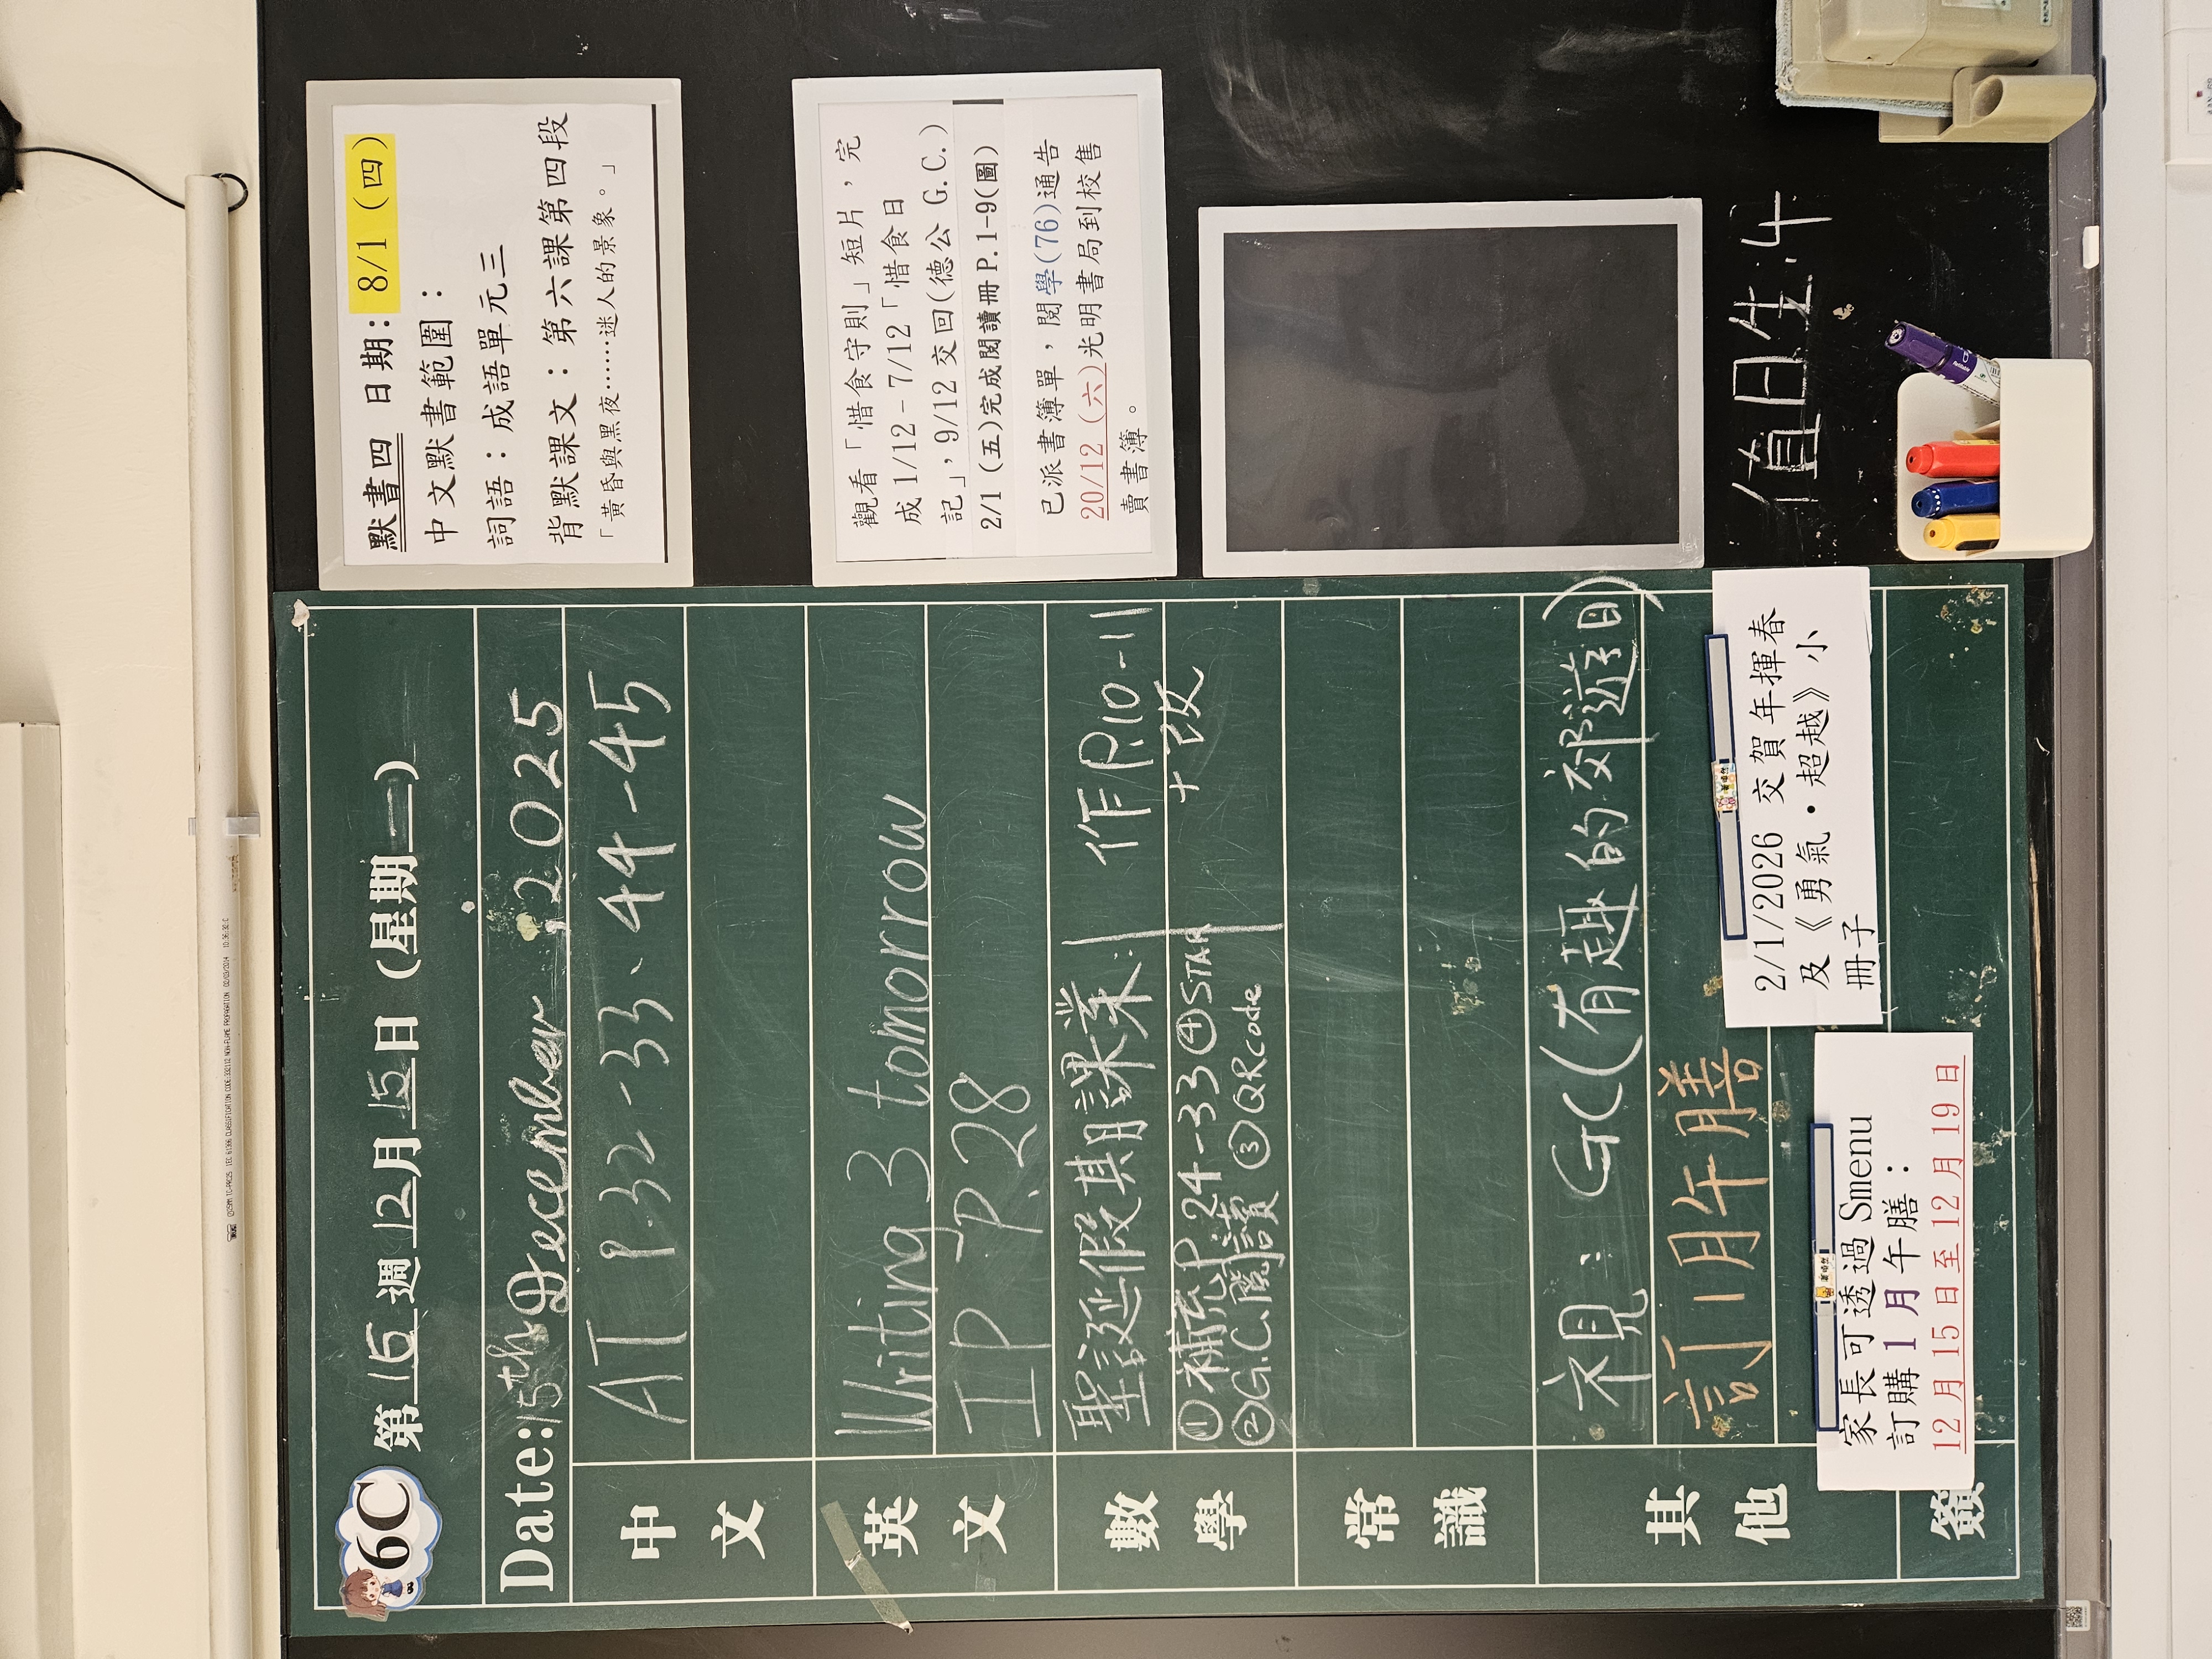 6C
第 15 週 12月 15日 (星期一)
Date: 15th December, 2025
中文
AT P.32-33、44-45
英文
Writing 3 tomorrow
IP P.28
數學
聖誕假期課業:
①補充P.24-33 ④STAR
②G.C.閱讀 ③QRcode
作P.10-11
+改
常識
其他
視: GC(有趣的郊遊日)
訂1月午膳
2/1/2026 交賀年揮春
及《勇氣·超越》小
冊子
家長可透過 Smenu
訂購 1 月午膳:
12 月 15 日至 12 月 19 日
簽
默書四 日期: 8/1 (四)
中文默書範圍:
詞語:成語單元三
背默課文:第六課第四段
「黃昏與黑夜……迷人的景象。」
觀看「惜食守則」短片,完
成 1/12 - 7/12「惜食日
記」,9/12 交回(德公 G.C.)
2/1 (五)完成閱讀冊 P.1-9(圖)
已派書簿單,閱學(76)通告
20/12 (六)光明書局到校售
賣書簿。
值日生:4